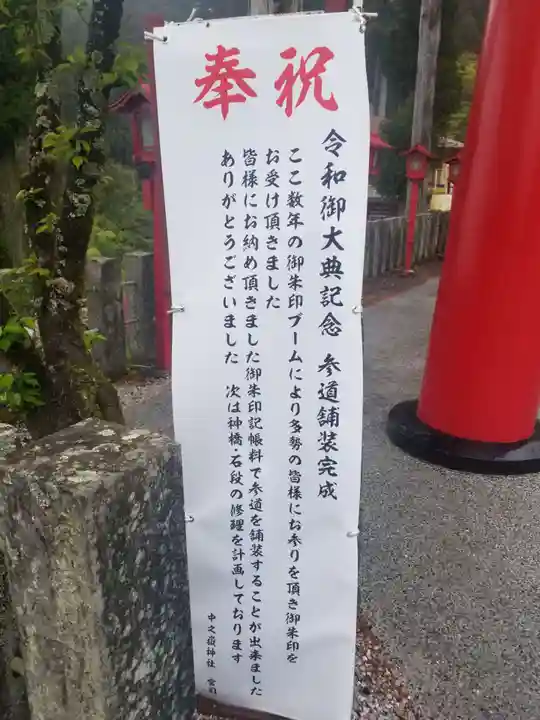 奉祝
令和御大典記念 参道舗装完成
ここ数年の御朱印ブームにより多勢の皆様にお参りを頂き御朱印を
お受け頂きました
皆様にお納め頂きました御朱印記帳料で参道を舗装することが出来ました
ありがとうございました 次は神橋・石段の修理を計画しております
中之嶽神社 宮司